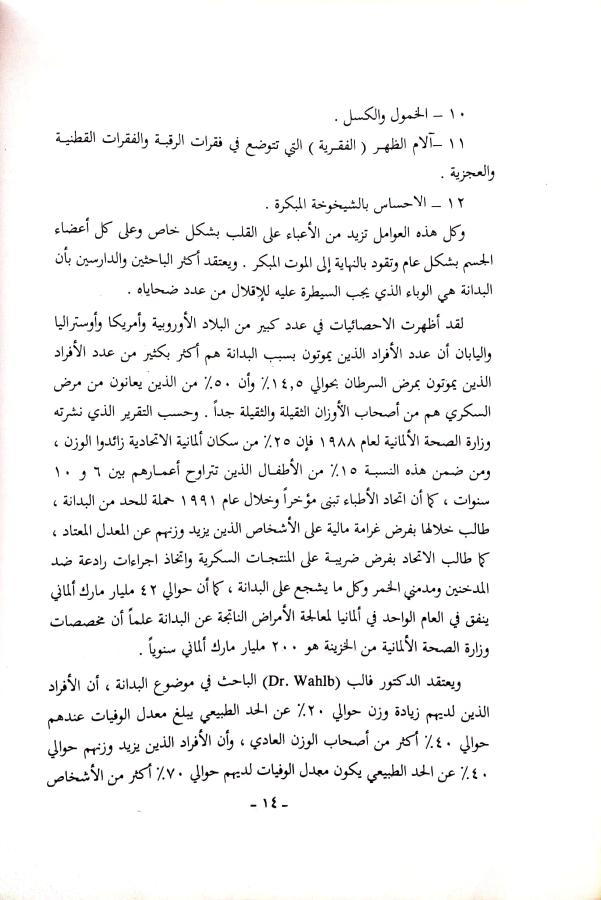 ١٠ – الخمول والكسل .
١١ –آلام الظهر ( الفقرية ) التي تتوضع في فقرات الرقبة والفقرات القطنية
والعجزية .
١٢ – الاحساس بالشيخوخة المبكرة .
وكل هذه العوامل تزيد من الأعباء على القلب بشكل خاص وعلى كل أعضاء
الجسم بشكل عام وتقود بالنهاية إلى الموت المبكر . ويعتقد أكثر الباحثين والدارسين بأن
البدانة هي الوباء الذي يجب السيطرة عليه للإقلال من عدد ضحاياه .
لقد أظهرت الاحصائيات في عدد كبير من البلاد الأوروبية وأمريكا وأوستراليا
واليابان أن عدد الأفراد الذين يموتون بسبب البدانة هم أكثر بكثير من عدد الأفراد
الذين يموتون بمرض السرطان بحوالي ١٤,٥٪ وأن ٥٠٪ من الذين يعانون من مرض
السكري هم من أصحاب الأوزان الثقيلة والثقيلة جداً . وحسب التقرير الذي نشرته
وزارة الصحة الألمانية لعام ١٩٨٨ فإن ٢٥٪ من سكان ألمانية الاتحادية زائدوا الوزن ،
ومن ضمن هذه النسبة ١٥٪ من الأطفال الذين تتراوح أعمارهم بين ٦ و ١٠
سنوات ، كما أن اتحاد الأطباء تبنى مؤخراً وخلال عام ١٩٩١ حملة للحد من البدانة ،
طالب خلالها بفرض غرامة مالية على الأشخاص الذين يزيد وزنهم عن المعدل المعتاد ،
كما طالب الاتحاد بفرض ضريبة على المنتجات السكرية واتخاذ اجراءات رادعة ضد
المدخنين ومدمني الخمر وكل ما يشجع على البدانة ، كما أن حوالي ٤٢ مليار مارك ألماني
ينفق في العام الواحد في ألمانيا لمعالجة الأمراض الناتجة عن البدانة علماً أن مخصصات
وزارة الصحة الألمانية من الخزينة هو ٢٠٠ مليار مارك ألماني سنوياً .
ويعتقد الدكتور فالب (Dr. Wahlb) الباحث في موضوع البدانة ، أن الأفراد
الذين لديهم زيادة وزن حوالي ٢٠٪ عن الحد الطبيعي يبلغ معدل الوفيات عندهم
حوالي ٤٠٪ أكثر من أصحاب الوزن العادي ، وأن الأفراد الذين يزيد وزنهم حوالي
٤٠٪ عن الحد الطبيعي يكون معدل الوفيات لديهم حوالي ٧٠٪ أكثر من الأشخاص
– ١٤ –